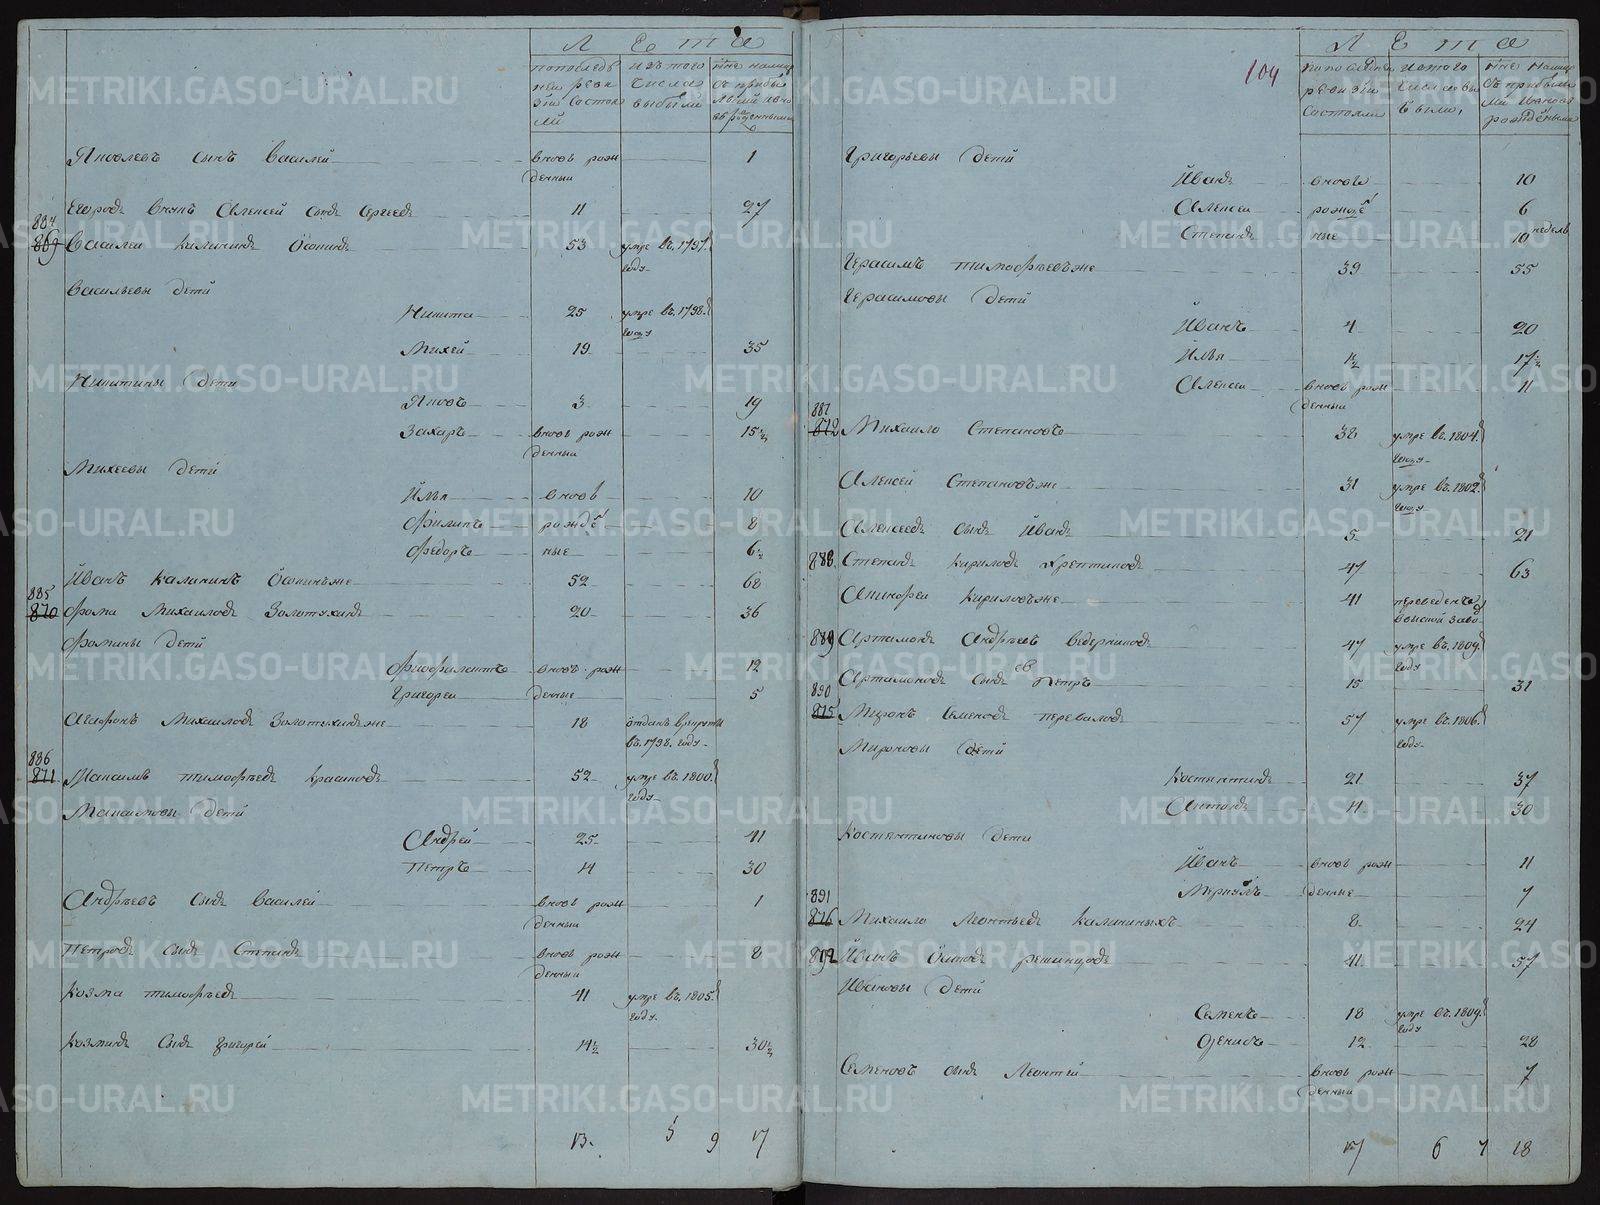 Лета
по последней ревизии состояли
из того числа выбыли
ныне налицо с прибылыми и вновь рожденными
Яковлевъ сынъ Василей вновь рожденный 1
Егоровъ внукъ Алексей сынъ Сергеевъ 11 27
884
869 Василей Калининъ Осокинъ 53 умре въ 1797 году
Васильевы дети
Никита 25 умре въ 1798 году
Михей 19 35
Никитины дети
Яковъ 3 19
Захаръ вновь рожденный 15½
Михеевы дети
Илья вновь 10
Филипъ рожде 8
Федоръ ные 6½
Иванъ Калининъ Осокинъ же 52 68
885
870 Фома Михаиловъ Золотухинъ 20 36
Фомины дети
Феофилактъ вновь рож 12
Григорей денные 5
Агафонъ Михаиловъ Золотухинъ же 18 отданъ в рекруты въ 1798 году
886
871 Максимъ Тимофеевъ Красиковъ 52 умре въ 1800 году
Максимовы дети
Андрей 25 41
Петръ 14 30
Андреевъ сынъ Василей вновь рожденный 1
Петровъ сынъ Степанъ вновь рожденный 8
Козма Тимофеевъ 41 умре въ 1805 году
Козминъ сынъ Григорей 14½ 30½
13. 5 9 17
104
Лета
по последней ревизии состояли
из того числа выбыли
ныне налицо с прибылыми и вновь рождёнными
Григорьевы дети
Иванъ вновь 10
Алексей рожде 6
Степанъ ные 10 недель
Герасимъ Тимофеевъ же 39 55
Герасимовы дети
Иванъ 4 20
Илья 1½ 17½
Алексей вновь рожденный 11
887
872 Михайло Степановъ 38 умре въ 1804 году
Алексей Степановъ же 31 умре въ 1802 году
Алексеевъ сынъ Иванъ 5 21
888 Степанъ Кириловъ 47 63
Кириловъ же 41 переведенъ
889 Артамонъ Андреевъ Ведерниковъ 47 умре въ 1809 году
Артамоновъ сынъ Петръ 15 31
890
875 Миронъ Семеновъ Переваловъ 57 умре въ 1806 году
Мироновы дети
Костянтинъ 21 37
Антонъ 14 30
Костянтиновы дети
Иванъ вновь рож 11
Меркулъ денные 7
891
876 Михайло Леонтьевъ Калининыхъ 8 24
892 Иванъ 41 57
Ивановы дети
Семенъ 18 умре въ 1809 году
Денисъ 12 28
Семеновъ сынъ Леонтей вновь рожденный 7
17 6 7 18
METRIKI.GASO-URAL.RU